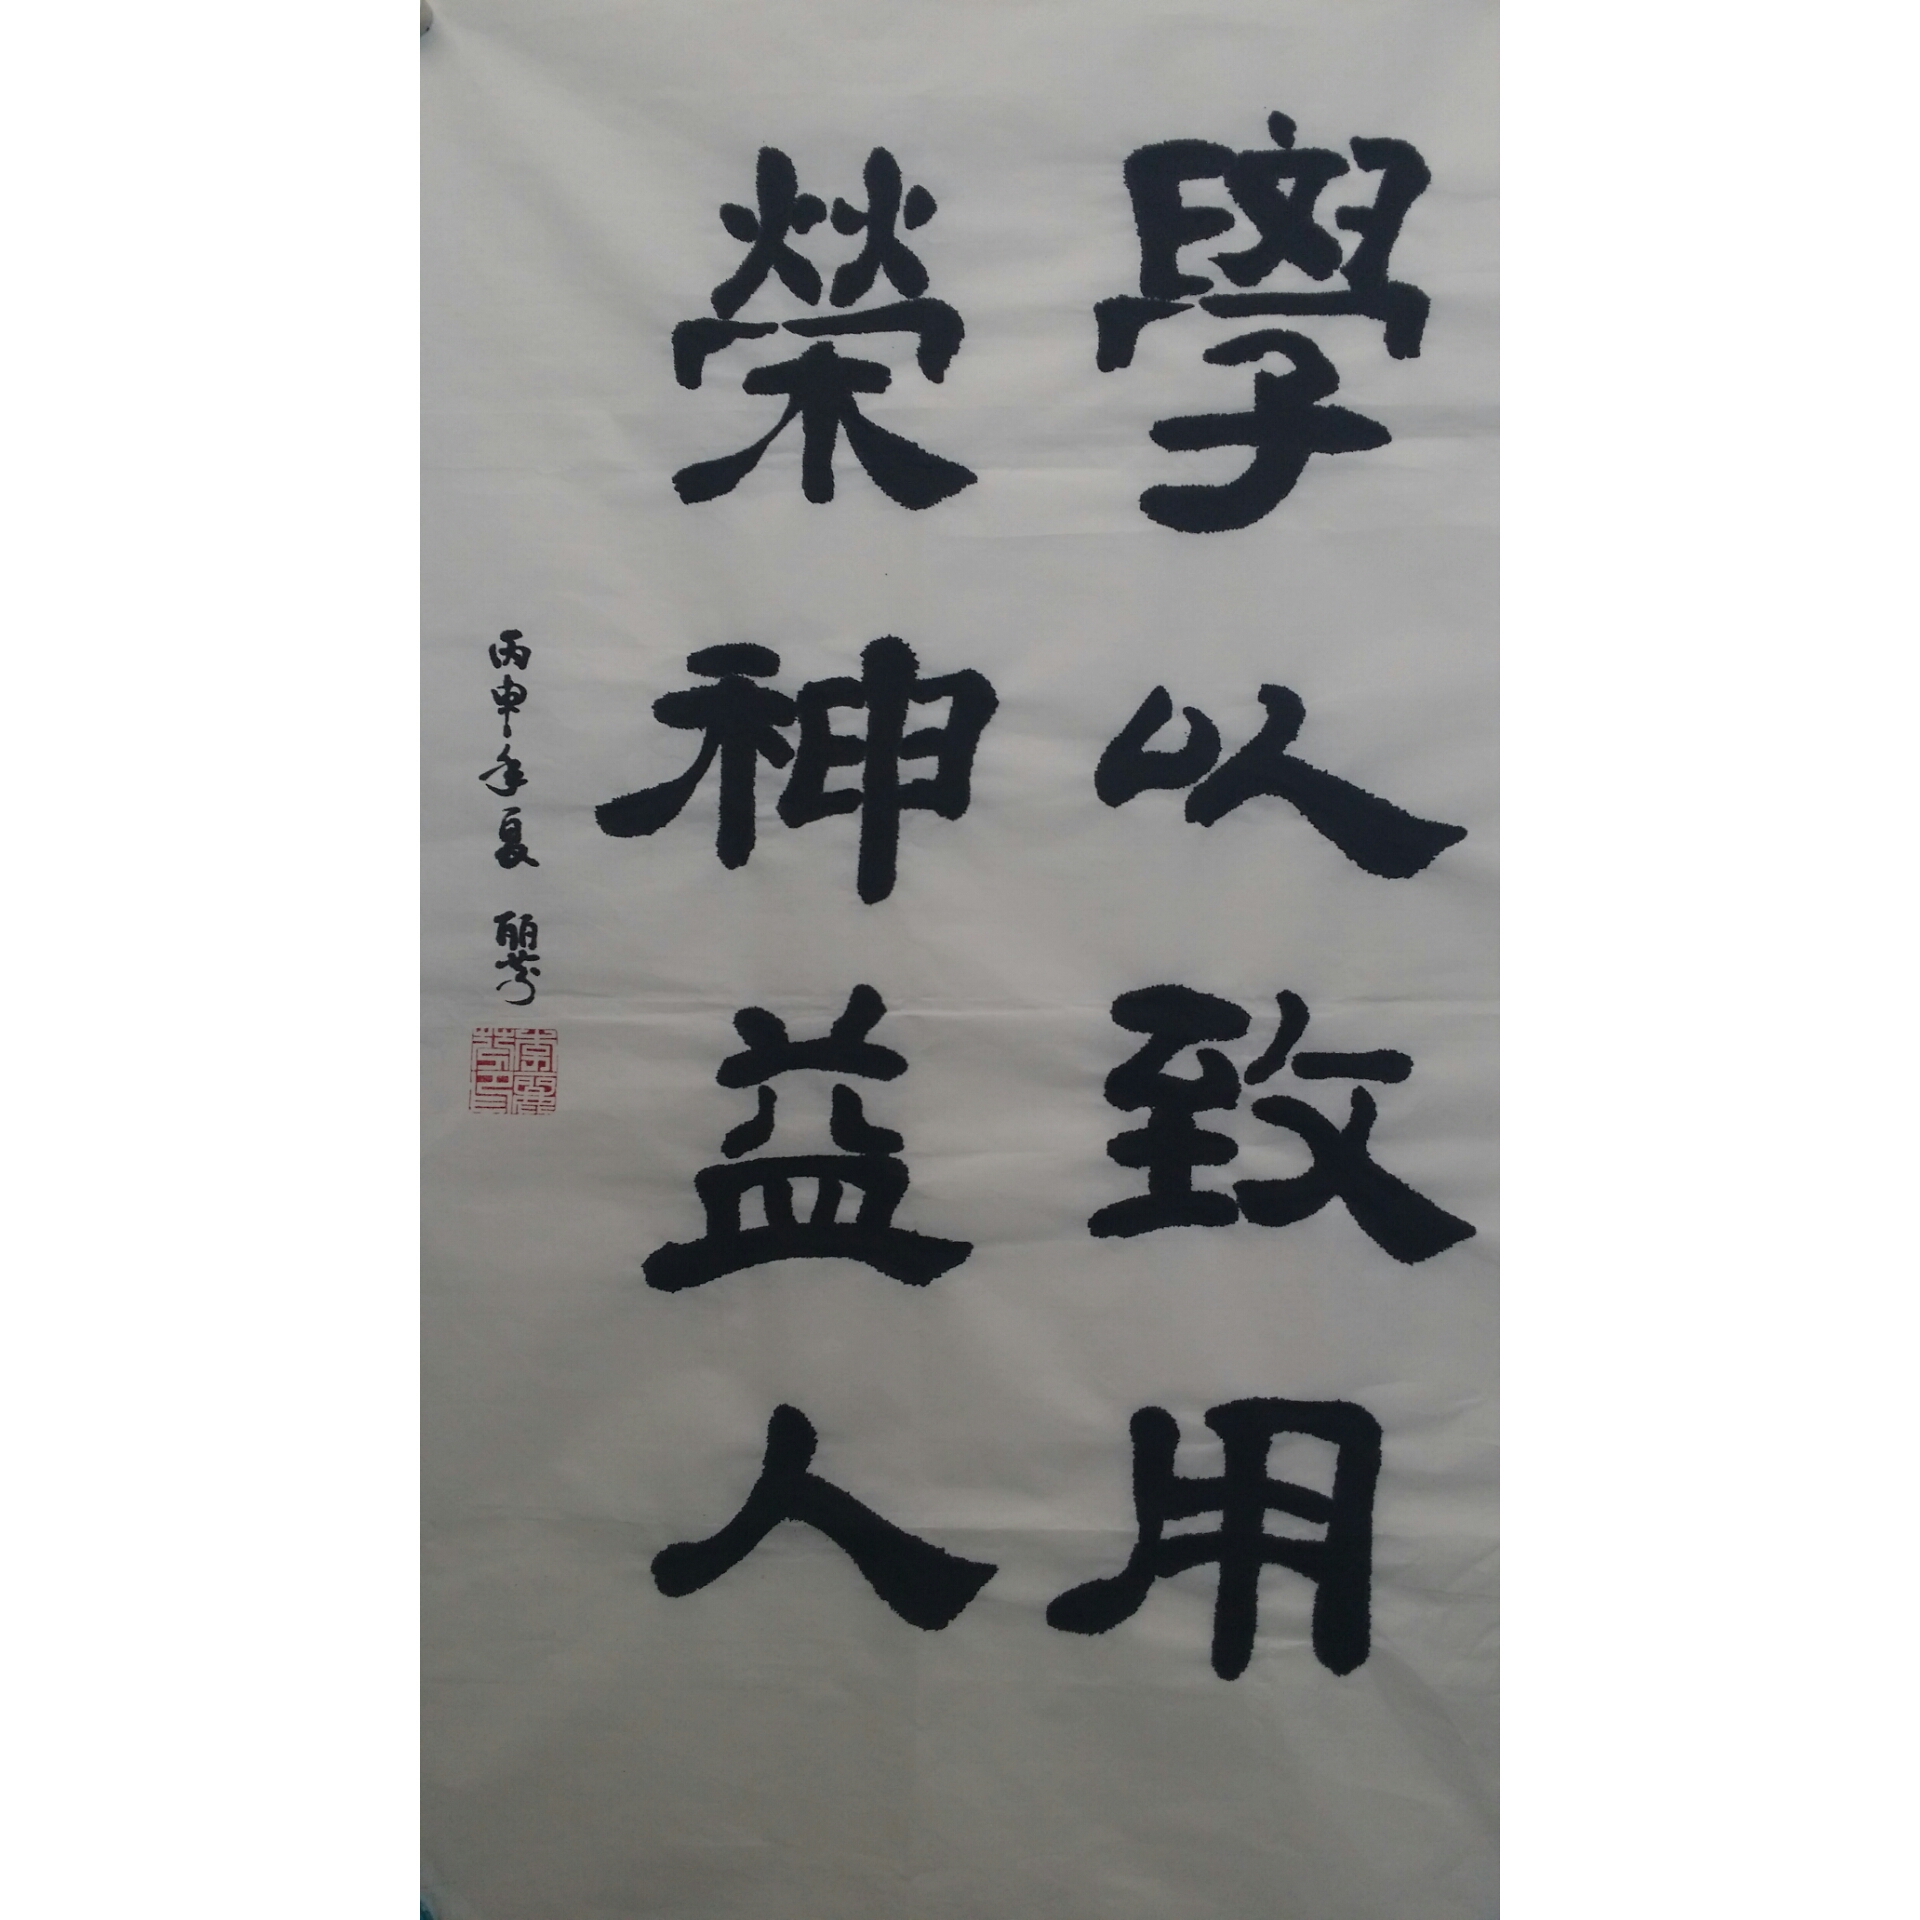 學以致用
榮神益人
丙申年夏 丽芳